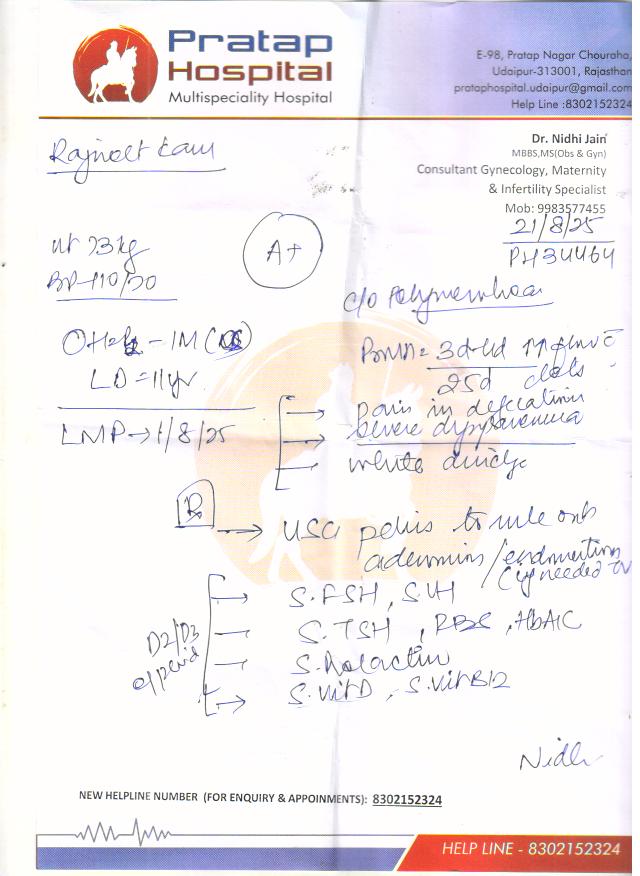 Pratap
Hospital
Multispeciality Hospital
E-98, Pratap Nagar Chouraha,
Udaipur-313001, Rajasthan
prataphospital.udaipur@gmail.com
Help Line :8302152324
Dr. Nidhi Jain
MBBS,MS(Obs & Gyn)
Consultant Gynecology, Maternity
& Infertility Specialist
Mob: 9983577455
21/8/25
PH34464
Rajneet Kaur
A+
BP-110/70
c/o Polymenorrhoea
- 1M
LD = 11yr
25d clots
LMP → 1/8/25
pain in defecation
severe dyspareunia
white
R
→ USG pelvis to rule out
adenomyosis/endometriosis
needed
D2/D3
of period
→ S.FSH, S.LH
S.TSH, RBS, HbA1C
S.Prolactin
→ S.VitD, S.VitB12
Nidhi
NEW HELPLINE NUMBER (FOR ENQUIRY & APPOINMENTS): 8302152324
HELP LINE - 8302152324